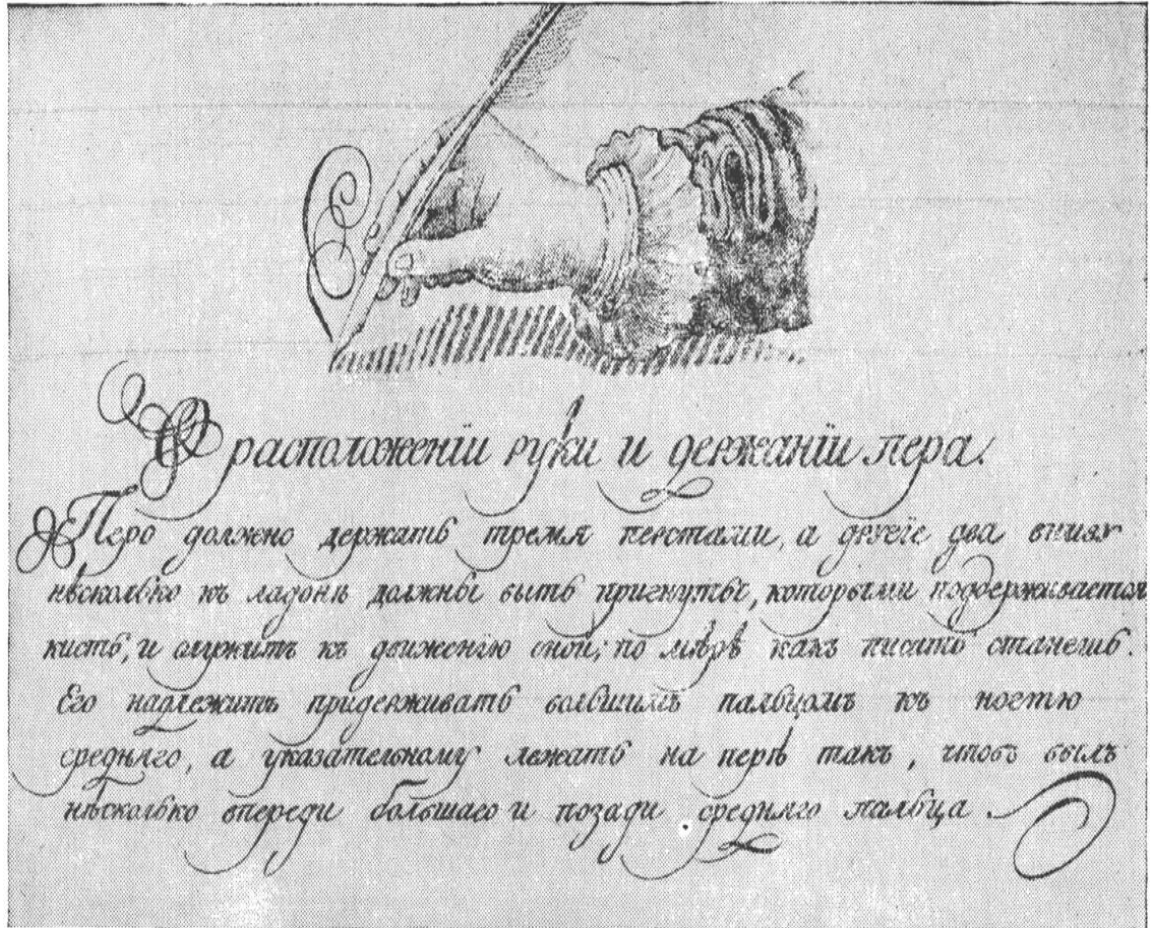 О расположенїи руки и держанїи пера.
Перо должно держать тремя перстами, а другїе два внизу
нѣсколько къ ладонѣ должны быть пригнуты, которыми поддерживается
кисть, и служитъ къ движенїю оной; по мѣрѣ какъ писать станешь.
Его надлежитъ придерживать большимъ пальцомъ къ ногтю
средняго, а указательному лежать на перѣ такъ, чтобъ былъ
нѣсколько впереди большаго и позади средняго пальца